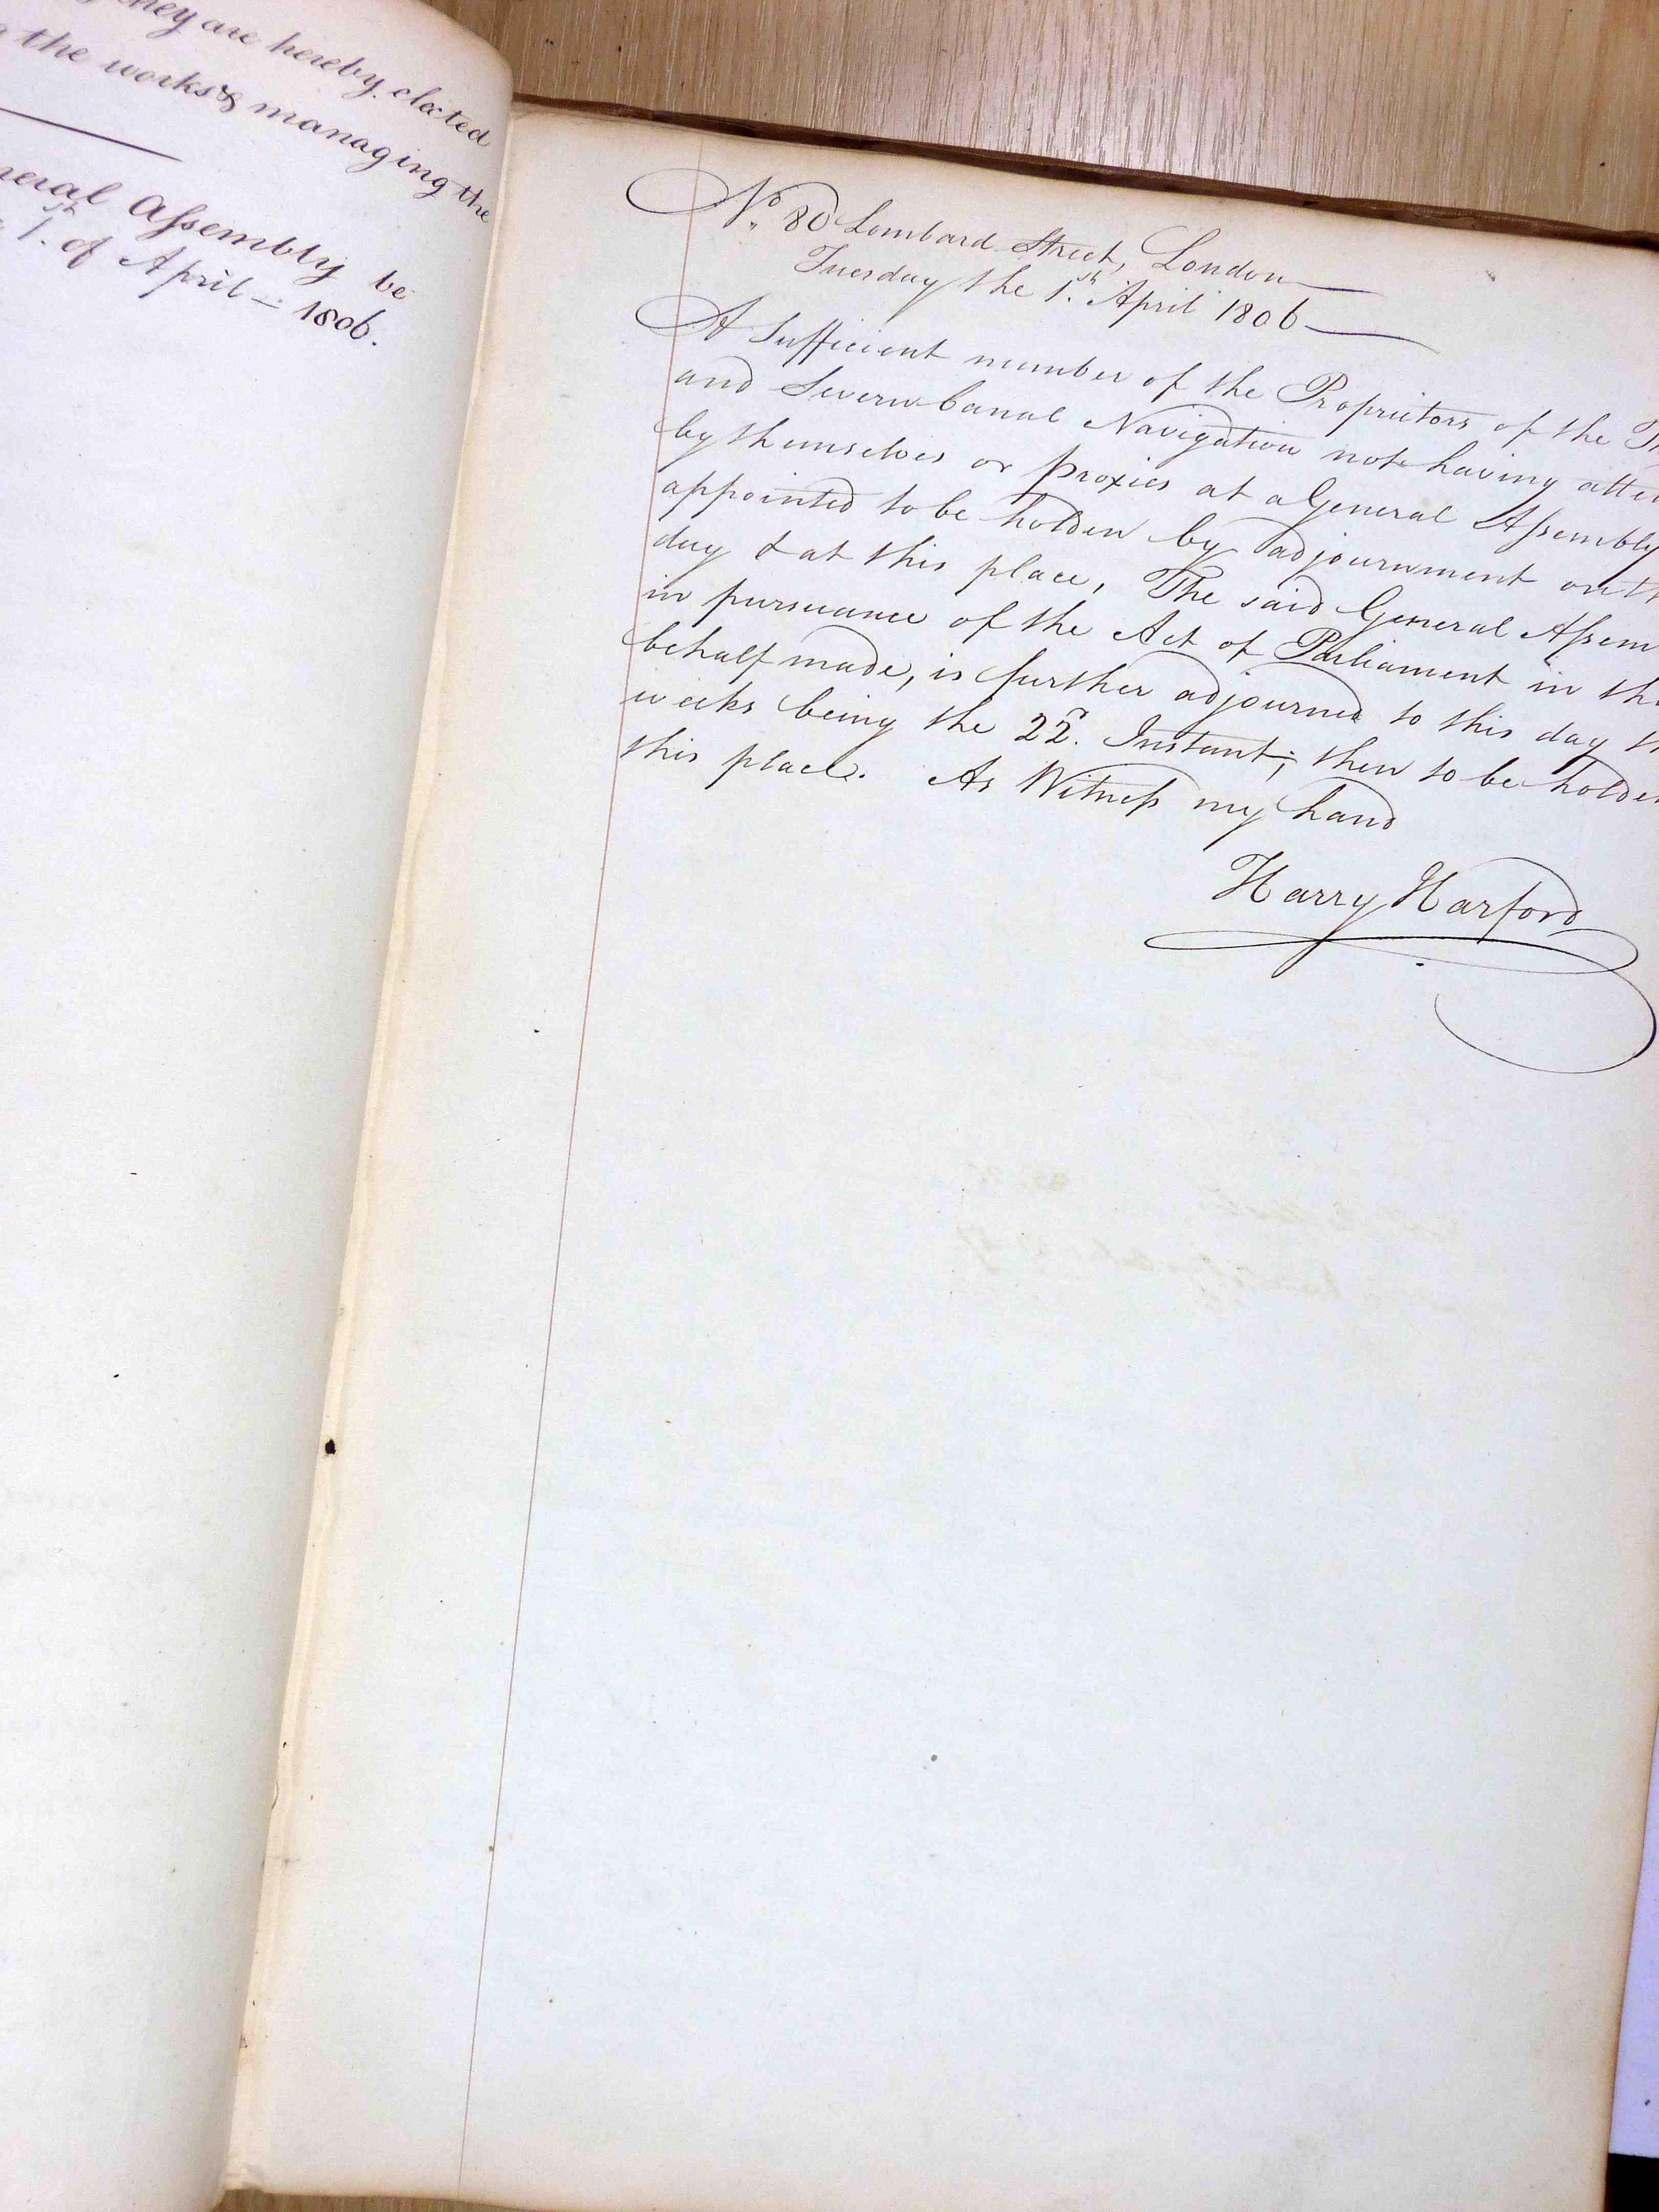 they are hereby elected
the works & managing the
neral Assembly be
1st. of April — 1806.
No. 80 Lombard Street, London
Tuesday the 1st. April 1806
A Sufficient number of the Proprietors of the Th
and Severn Canal Navigation not having atten
by themselves or proxies at a General Assembly
appointed to be holden by adjournment on th
day & at this place, The said General Assem
in pursuance of the Act of Parliament in tha
behalf made, is further adjourned to this day th
weeks being the 22d. Instant; then to be holden
this place. As Witness my hand
Harry Harford